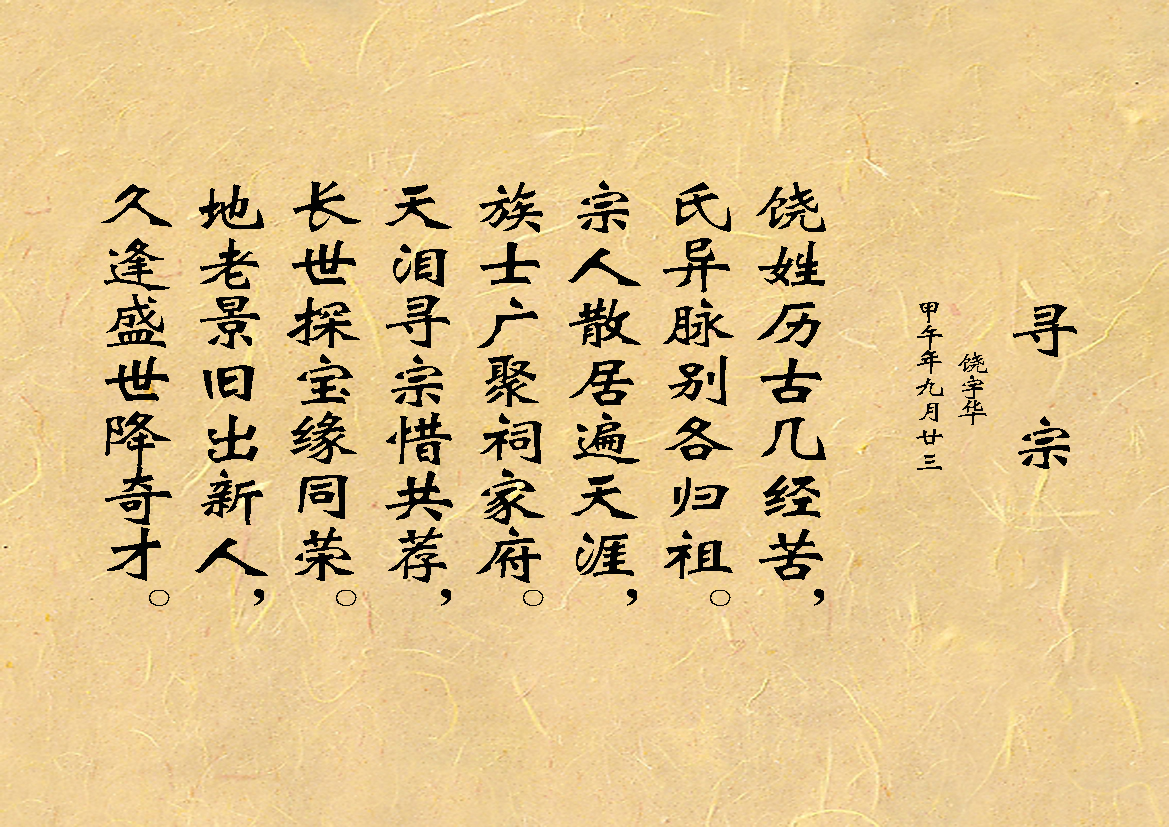 寻宗
饶宇华
甲午年九月廿三
饶姓历古几经苦，
氏异脉别各归祖。
宗人散居遍天涯，
族士广聚祠家府。
天泪寻宗惜共荐，
长世探宝缘同荣。
地老景旧出新人，
久逢盛世降奇才。